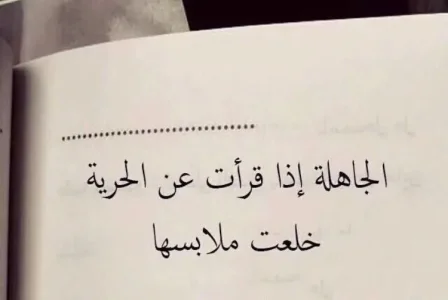 الجاهلة إذا قرأت عن الحرية
خلعت ملابسها